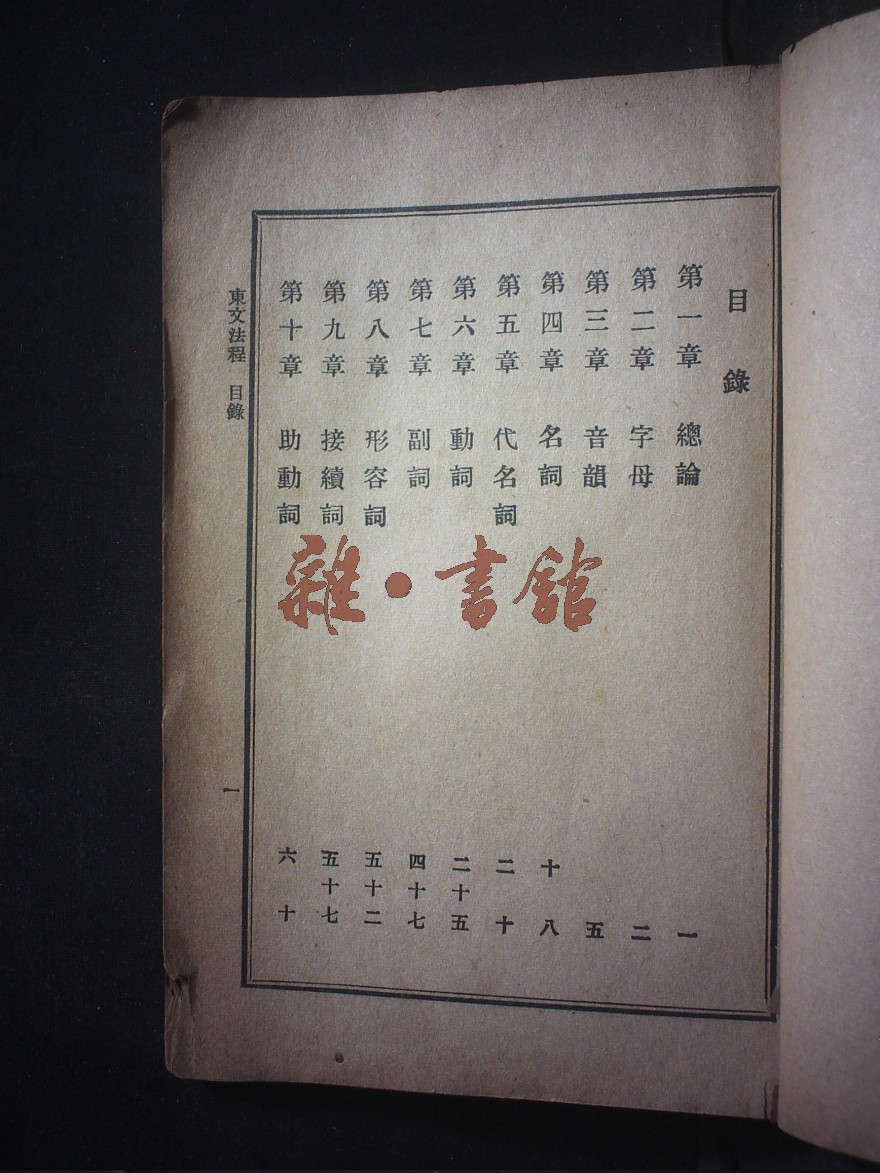 目錄
第一章 總論 一
第二章 字母 二
第三章 音韻 五
第四章 名詞 十八
第五章 代名詞 二十
第六章 動詞 二十五
第七章 副詞 四十七
第八章 形容詞 五十二
第九章 接續詞 五十七
第十章 助動詞 六十
東文法程 目錄 一
雜·書館